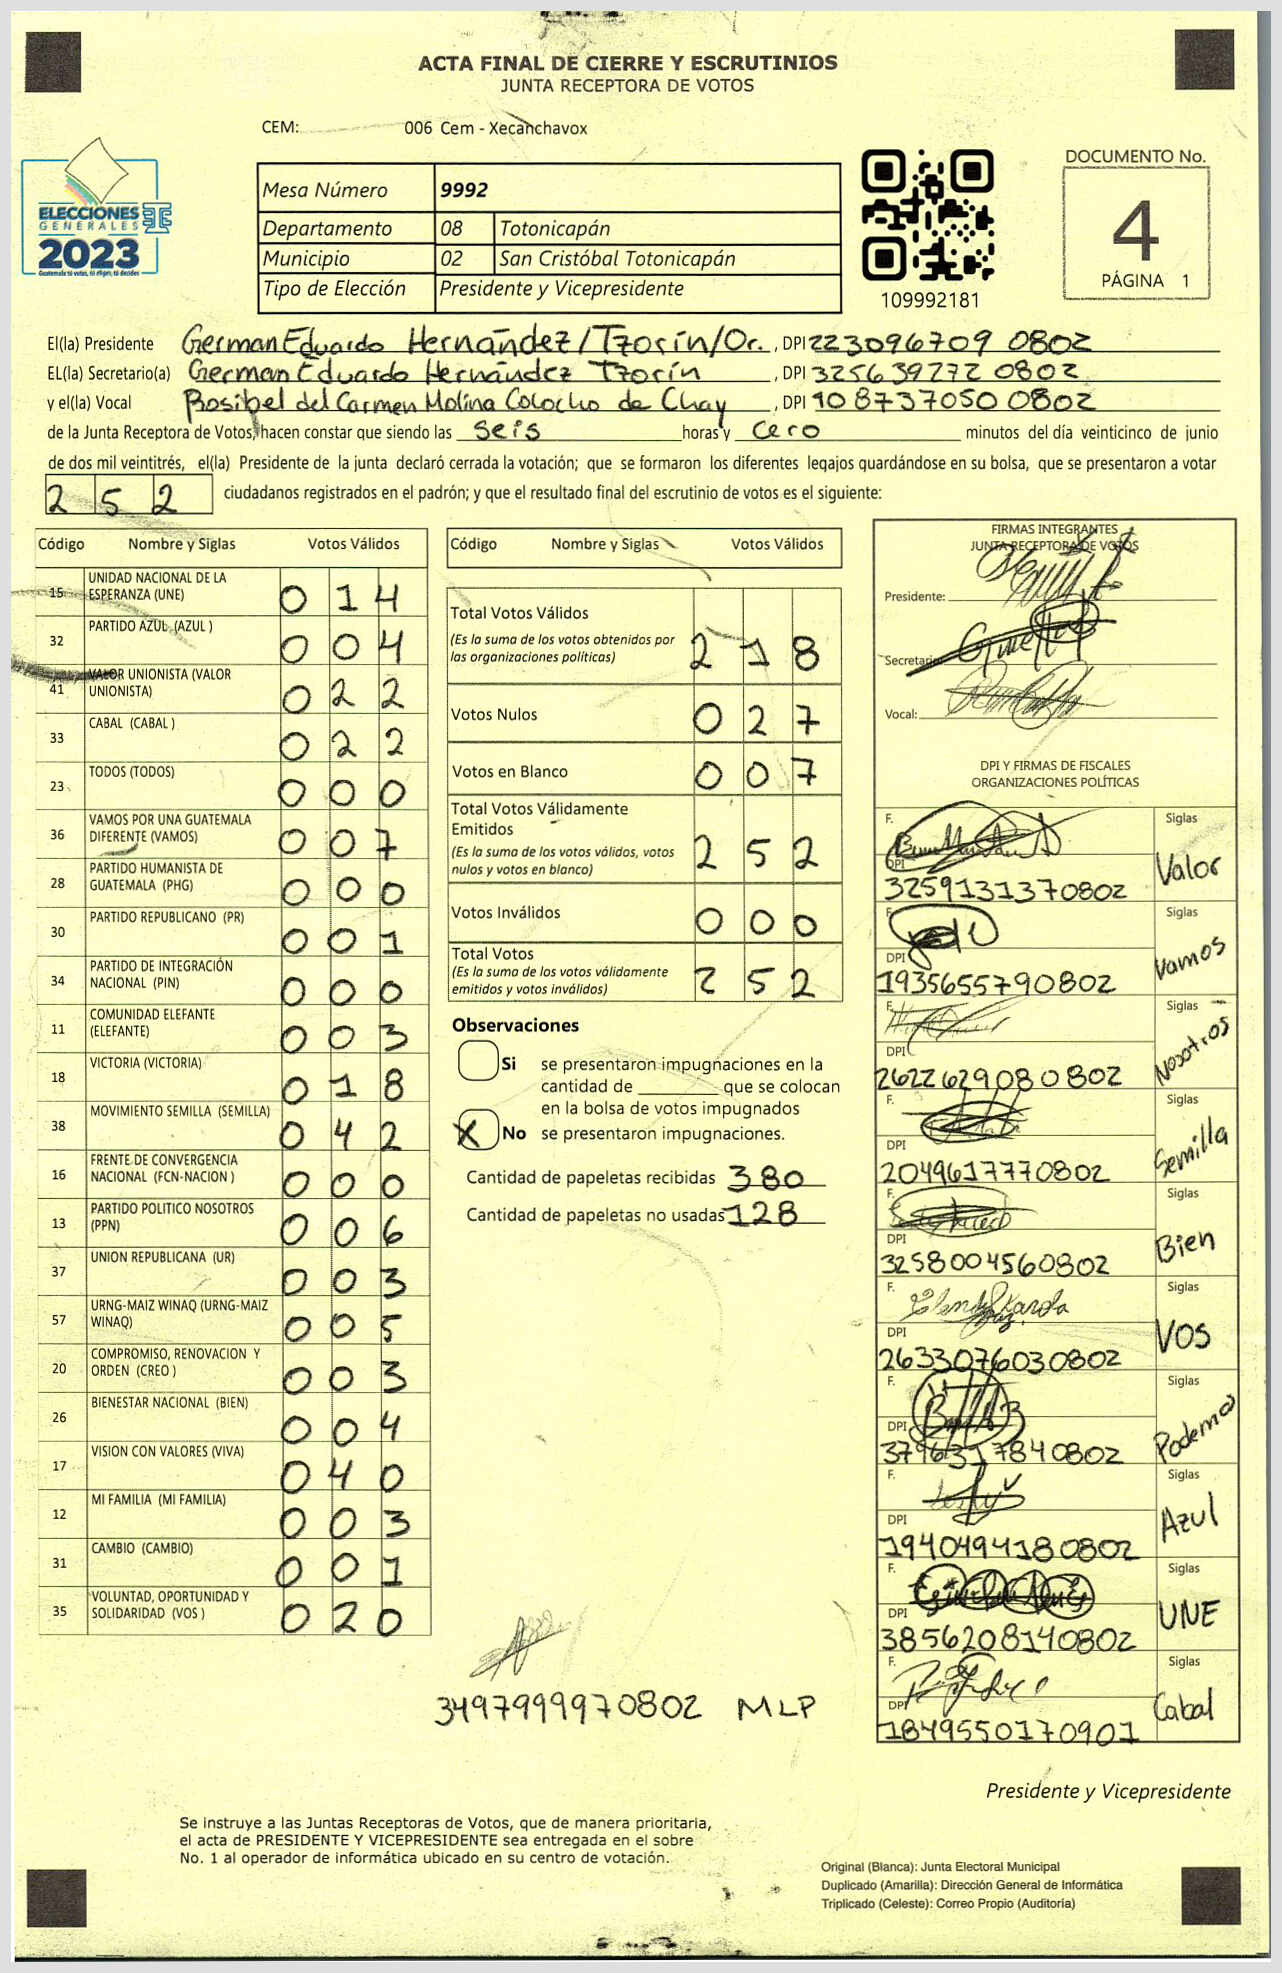 ACTA FINAL DE CIERRE Y ESCRUTINIOS
JUNTA RECEPTORA DE VOTOS
CEM: 006 Cem - Xecanchavox
ELECCIONES
GENERALES
2023
Guatemala tú votas, tú eliges, tú decides
Mesa Número 9992
Departamento 08 Totonicapán
Municipio 02 San Cristóbal Totonicapán
Tipo de Elección Presidente y Vicepresidente
109992181
DOCUMENTO No.
4
PÁGINA 1
El(la) Presidente German Eduardo Hernández/Tzorín/Or. , DPI 223096709 0802
EL(la) Secretario(a) German Eduardo Hernández Tzorín , DPI 325639272 0802
y el(la) Vocal Rosibel del Carmen Molina Colocho de Chay , DPI 108737050 0802
de la Junta Receptora de Votos, hacen constar que siendo las seis horas y cero minutos del día veinticinco de junio
de dos mil veintitrés, el(la) Presidente de la junta declaró cerrada la votación; que se formaron los diferentes legajos guardándose en su bolsa, que se presentaron a votar
252 ciudadanos registrados en el padrón; y que el resultado final del escrutinio de votos es el siguiente:
Código Nombre y Siglas Votos Válidos
15 UNIDAD NACIONAL DE LA ESPERANZA (UNE) 014
32 PARTIDO AZUL (AZUL ) 004
41 VALOR UNIONISTA (VALOR UNIONISTA) 022
33 CABAL (CABAL ) 022
23 TODOS (TODOS) 000
36 VAMOS POR UNA GUATEMALA DIFERENTE (VAMOS) 007
28 PARTIDO HUMANISTA DE GUATEMALA (PHG) 000
30 PARTIDO REPUBLICANO (PR) 001
34 PARTIDO DE INTEGRACIÓN NACIONAL (PIN) 000
11 COMUNIDAD ELEFANTE (ELEFANTE) 003
18 VICTORIA (VICTORIA) 018
38 MOVIMIENTO SEMILLA (SEMILLA) 042
16 FRENTE DE CONVERGENCIA NACIONAL (FCN-NACION ) 000
13 PARTIDO POLITICO NOSOTROS (PPN) 006
37 UNION REPUBLICANA (UR) 003
57 URNG-MAIZ WINAQ (URNG-MAIZ WINAQ) 005
20 COMPROMISO, RENOVACION Y ORDEN (CREO ) 003
26 BIENESTAR NACIONAL (BIEN) 004
17 VISION CON VALORES (VIVA) 040
12 MI FAMILIA (MI FAMILIA) 003
31 CAMBIO (CAMBIO) 001
35 VOLUNTAD, OPORTUNIDAD Y SOLIDARIDAD (VOS ) 020
Código Nombre y Siglas Votos Válidos
Total Votos Válidos
(Es la suma de los votos obtenidos por las organizaciones políticas) 218
Votos Nulos 027
Votos en Blanco 007
Total Votos Válidamente Emitidos
(Es la suma de los votos válidos, votos nulos y votos en blanco) 252
Votos Inválidos 000
Total Votos
(Es la suma de los votos válidamente emitidos y votos inválidos) 252
Observaciones
Si se presentaron impugnaciones en la
cantidad de ________ que se colocan
en la bolsa de votos impugnados
X No se presentaron impugnaciones.
Cantidad de papeletas recibidas 380
Cantidad de papeletas no usadas 128
3497999970802 MLP
FIRMAS INTEGRANTES
JUNTA RECEPTORA DE VOTOS
Presidente:
Secretario:
Vocal:
DPI Y FIRMAS DE FISCALES
ORGANIZACIONES POLÍTICAS
F. Siglas
DPI 3259131370802 Valor
F. Siglas
DPI 1935655790802 Vamos
F. Siglas
DPI 2622629080802 Nosotros
F. Siglas
DPI 2049617770802 Semilla
F. Siglas
DPI 3258004560802 Bien
F. Siglas
DPI 2633076030802 VOS
F. Siglas
DPI 3796317840802 Podemos
F. Siglas
DPI 1940494180802 Azul
F. Siglas
DPI 3856208140802 UNE
F. Siglas
DPI 1849550170901 Cabal
Presidente y Vicepresidente
Se instruye a las Juntas Receptoras de Votos, que de manera prioritaria,
el acta de PRESIDENTE Y VICEPRESIDENTE sea entregada en el sobre
No. 1 al operador de informática ubicado en su centro de votación.
Original (Blanca): Junta Electoral Municipal
Duplicado (Amarilla): Dirección General de Informática
Triplicado (Celeste): Correo Propio (Auditoría)